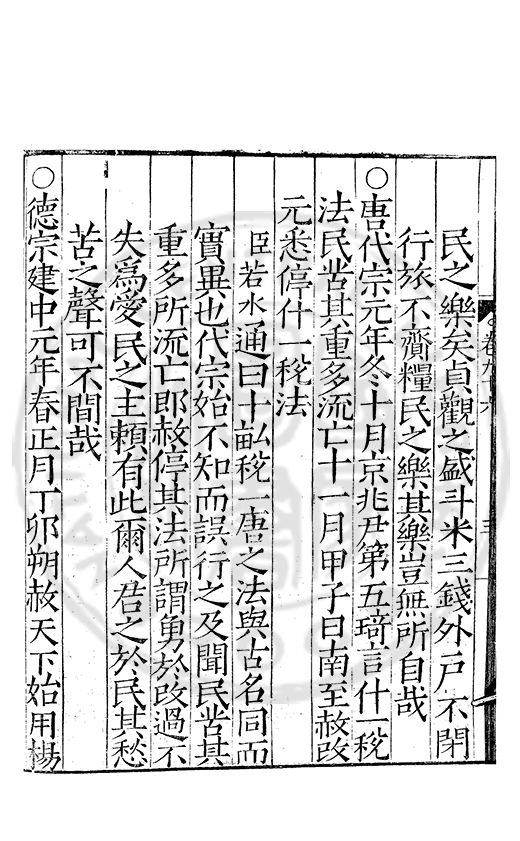 民之樂矣貞觀之盛斗米三錢外戶不閉
行旅不齎糧民之樂其樂豈無所自哉
○唐代宗元年冬十月京兆尹第五琦言什一稅
法民苦其重多流亡十一月甲子日南至赦改
元悉停什一稅法
臣若水通曰十畝稅一唐之法與古名同而
實異也代宗始不知而誤行之及聞民苦其
重多所流亡即赦停其法所謂勇於改過不
失爲愛民之主賴有此爾人君之於民其愁
苦之聲可不間哉
○德宗建中元年春正月丁卯朔赦天下始用楊
卷九十六